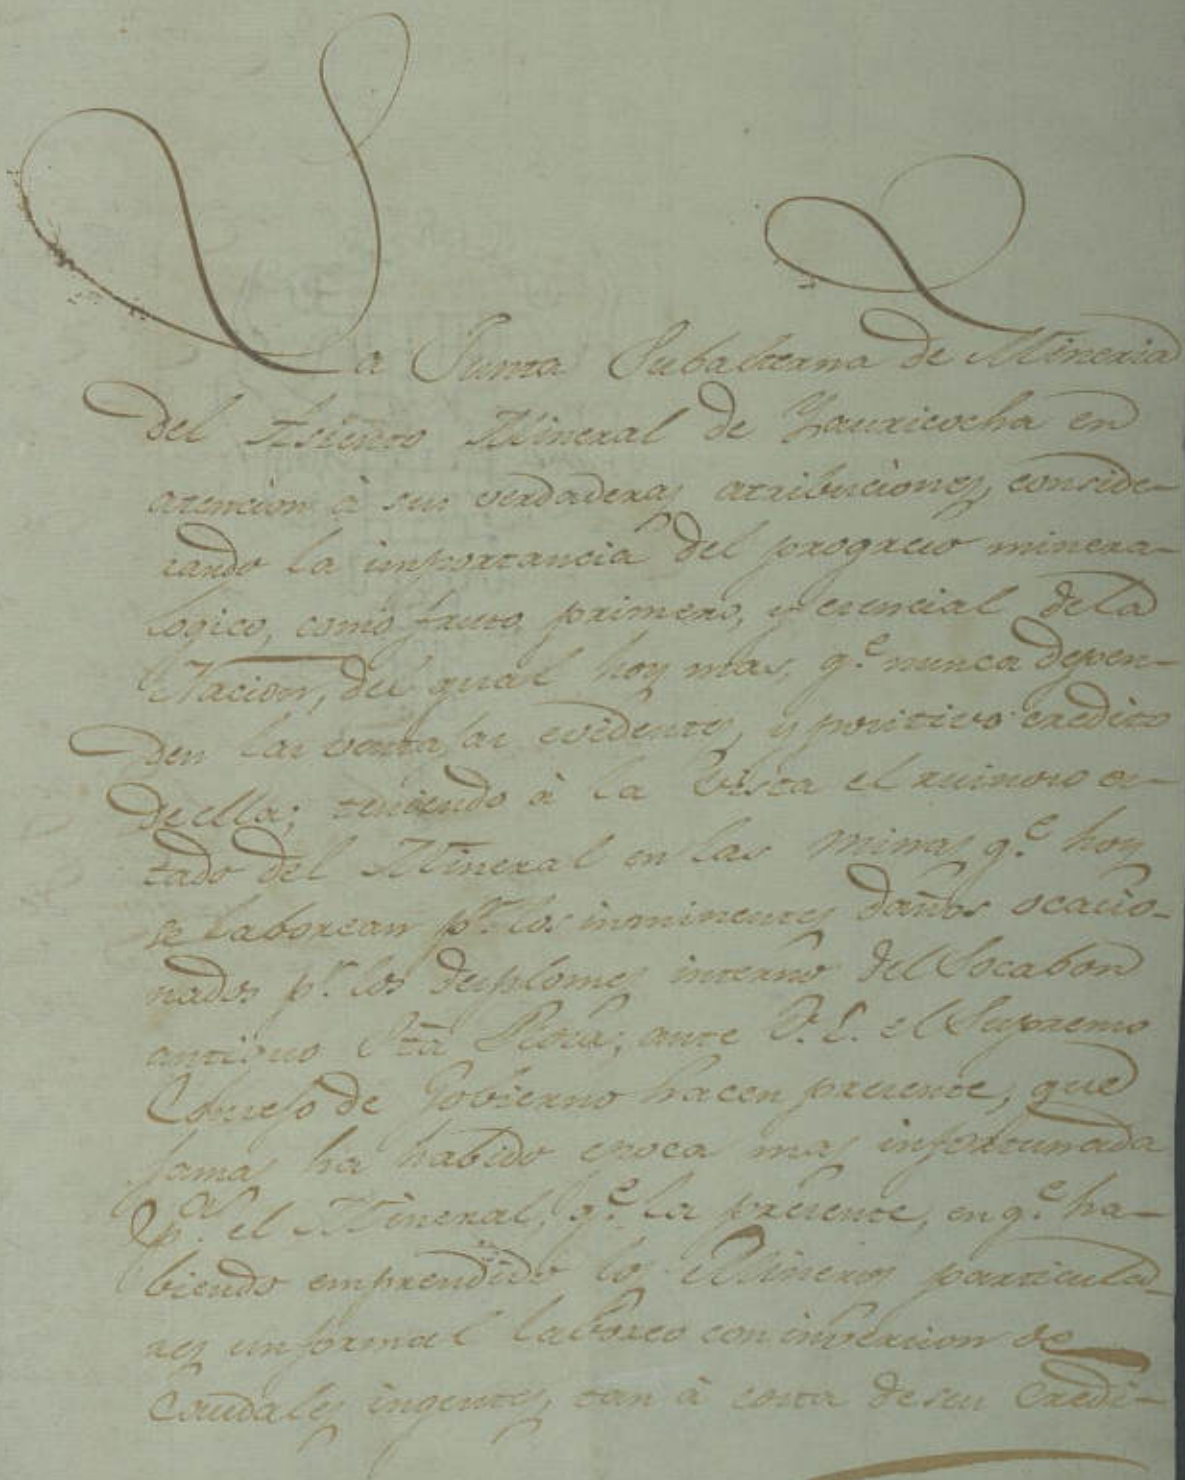 La Junta Subalterna de Mineria
del Asiento Mineral de Yauricocha en
atencion à sus verdaderas atribuciones, conside-
rando la importancia del progreso minera-
logico, como fruto primero, y esencial dela
Nacion, del qual hoy mas, q.e nunca depen-
den las ventajas evidentes, y positivo credito
de ella; teniendo à la vista el ruinoso es-
tado del Mineral en las minas q.e hoy
se laborean p.r los inminentes daños ocacio-
nados p.r los desplomes interno del Socabon
antiguo Sta Rosa; ante V.E. el Supremo
Consejo de Govierno hacen presente, que
jamas ha habido epoca mas infortunada
p.a el Mineral, q.e la presente, en q.e ha-
biendo emprendido los Mineros particula-
res un formal laboreo con inversion de
Caudales ingentes, tan à costa de su Credi-